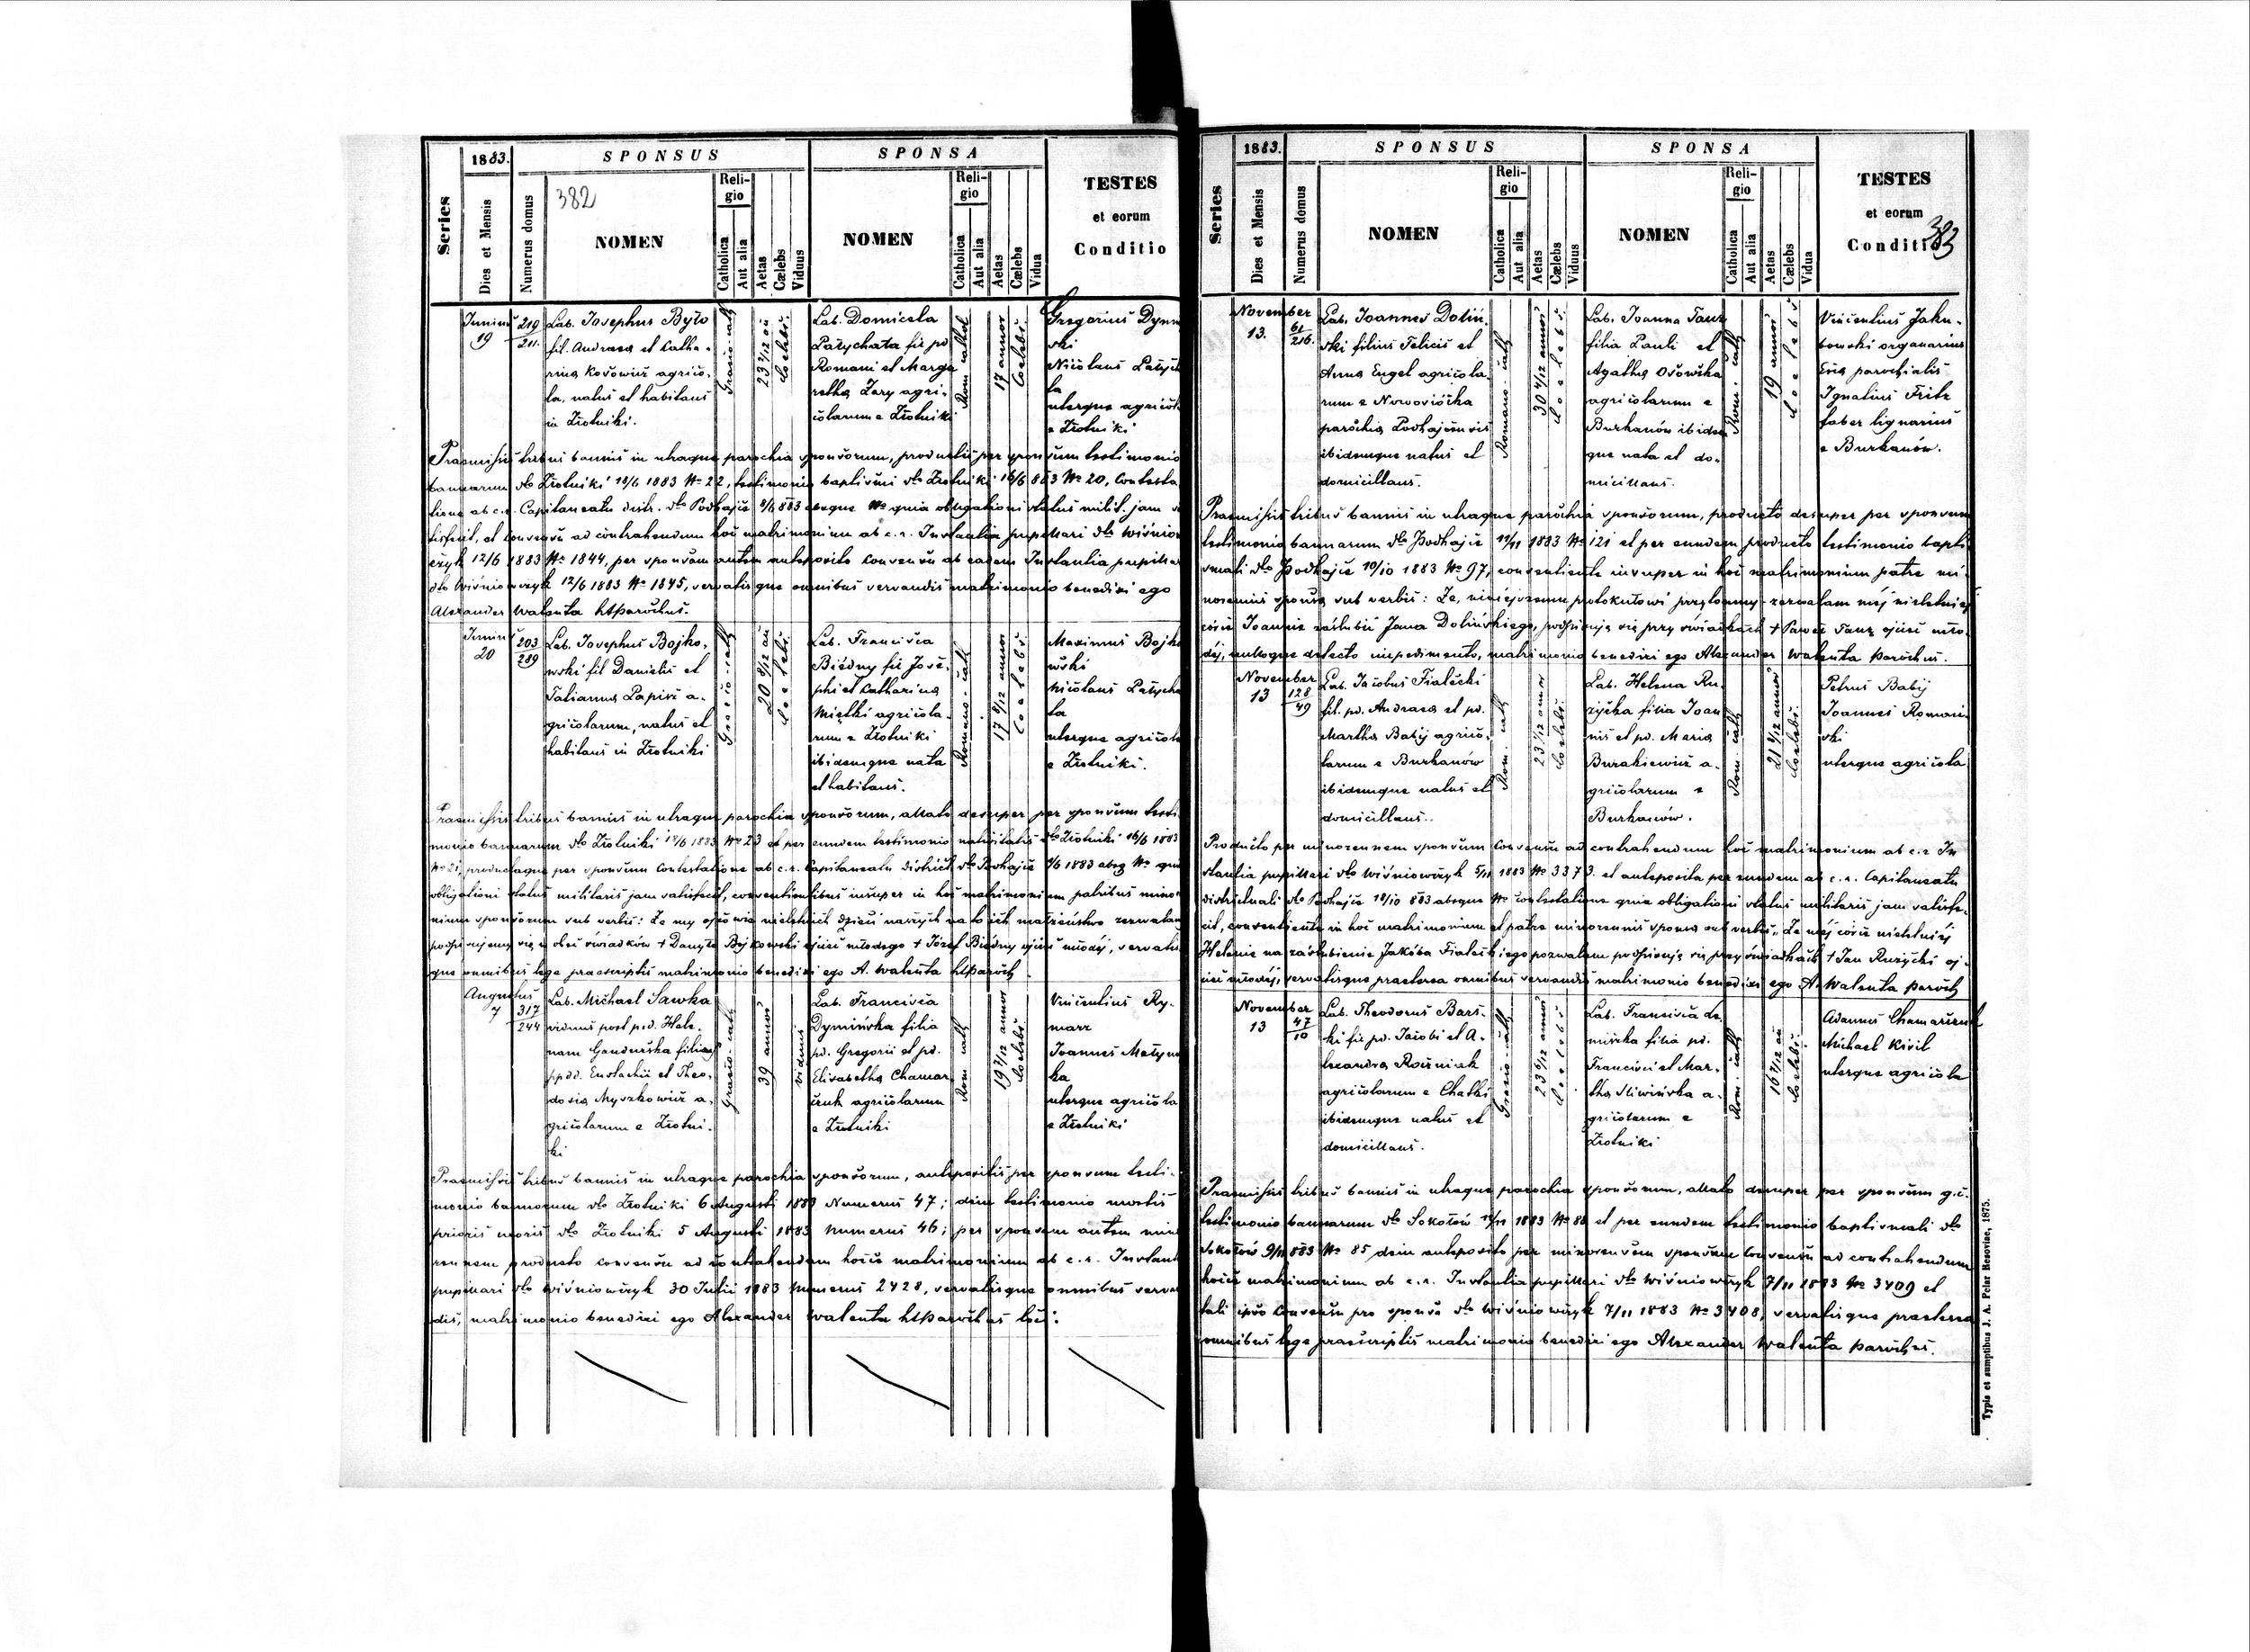 1883.
SPONSUS
SPONSA
TESTES
et eorum
Conditio
Series
Dies et Mensis
Numerus domus
382
NOMEN
Religio
Catholica
Aut alia
Aetas
Cælebs
Viduus
NOMEN
Religio
Catholica
Aut alia
Aetas
Cælebs
Vidua
Junius
19
219
211.
Lab. Josephus Było
fil. Andreae et Catha-
rina agrico-
la, natus et habitans
in Złotniki.
23 7/12 an
Coelebs
Lab. Domicela
Patychata fil pd
Romani et Marga
retha Zary agri-
colarum e Złotniki
Rom cathol
17 annor
Coelebs
Gregorius
ski
Nicolaus
la
uterque agricola
e Złotniki
Praemissis tribus bannis in utraque parochia sponsorum, productis per sponsum testimonio
bannorum dto Złotniki 18/6 1883 No 22, testimonio baptismi dto Złotniki 16/6 883 No 20, Contesta
tione ab c.r. Capitaneatu distr. dto Podhajce 8/6 883 absque No quia obligationi status milit. jam
tisfecit, et consensu ad contrahendum hoc matrimonium ab c.r. Instantia pupillari dto Wiśniow
czyk 12/6 1883 No 1844, per sponsam autem anteposito consensu ab eadem Instantia pupilla
dto Wiśniowczyk 12/6 1883 No 1845, servatisque omnibus servandis matrimonio benedixi ego
Alexander Walenta parochus.
Junius
20
203
289
Lab. Josephus Bojko-
wski fil Danielis et
Tatianna Papisz a-
gricolarum, natus et
habitans in Złotniki
Graeco-cath
20 5/12 an
Coelebs
Lab. Francisca
Biedny fil Jose-
phi et Catharina
Mielki agricola-
rum e Złotniki
ibidemque nata
et habitans.
Romano-cath
17 8/12 annor
Coelebs
Maximus Bojko
wski
Nicolaus Patycha
la
uterque agricola
e Złotniki.
Praemissis tribus bannis in utraque parochia sponsorum, allato desuper per sponsum testi-
monio bannorum dto Złotniki 18/6 1883 No 23 et per eundem testimonio nativitatis dto Złotniki 16/6 1883
No 21, productaque per sponsum Contestatione ab c.r. Capitaneatu district dto Podhajce 1/6 1883 absq No quia
obligationi status militaris jam satisfecit, consentientibus insuper in hoc matrimonium patribus mino
rennium sponsorum sub verbis: Że my ojcowie nieletnich dzieci naszych na to ich małżeństwo zezwalamy
podpisujemy się w obec świadków + Danyło Bojkowski ojciec młodego + Józef Biedny ojciec młodej, servatis
que omnibus lege praescriptis matrimonio benedixi ego A. Walenta parochus
Augustus
7
317
244
Lab. Michael Sawka
viduus post pd. Hele-
nam filius
ppdd. Eustachii et Theo-
dosia Myszkowicz a-
gricolarum e Złotni-
ki
Graeco-cath
39 annor
viduus
Lab. Francisca
Dymińska filia
pd. Gregorii et pd.
Elisabetha Chamar
czuk agricolarum
e Złotniki
Rom cath
19 7/12 annor
Coelebs
Vincentius Ry-
marz
Joannes
ka
uterque agricola
e Złotniki
Praemissis tribus bannis in utraque parochia sponsorum, antepositis per sponsum testi-
monio bannorum dto Złotniki 6 Augusti 1883 Numerus 47; dein testimonio mortis
prioris uxoris dto Złotniki 5 Augusti 1883 numerus 46; per sponsam autem mino
rennem producto consensu ad contrahendum hocce matrimonium ab c.r. Instant
pupillari dto Wiśniowczyk 30 Julii 1883 Numerus 2428, servatisque omnibus servan
dis, matrimonio benedixi ego Alexander Walenta parochus loci.
1883.
SPONSUS
SPONSA
TESTES
et eorum
Conditio
383
Series
Dies et Mensis
Numerus domus
NOMEN
Religio
Catholica
Aut alia
Aetas
Cælebs
Viduus
NOMEN
Religio
Catholica
Aut alia
Aetas
Cælebs
Vidua
November
13.
61
216.
Lab. Joannes Doliń-
ski filius Felicis et
Anna Engel agricola-
rum e Nowosiółka
parochia Podhajcensis
ibidemque natus et
domicilians.
Romano-cath
30 4/12 annor
Coelebs
Lab. Joanna Tanz
filia Pauli et
Agatha Osowska
agricolarum e
Burkanów ibidem
que nata et do-
micilians.
Rom. cath
19 annor
Coelebs
Vincentius Jaku-
bowski organarius
Ecia parochialis
Ignatius Fritz
faber lignarius
e Burkanów.
Praemissis tribus bannis in utraque parochia sponsorum, producto desuper per sponsum
testimonio bannorum dto Podhajce 11/11 1883 No 121 et per eundem producto testimonio bapti-
smali dto Podhajce 10/10 1883 No 97, consentiente insuper in hoc matrimonium patre mi-
norennis sponsa sub verbis: Że, niniejszemu protokułowi przytomny zezwalam mej nieletniej
córce Joannie zaślubić Jana Dolińskiego, podpisuję się przy świadkach + Paweł Tanz ojciec mło-
dej, nulloque detecto impedimento, matrimonio benedixi ego Alexander Walenta Parochus.
November
13
128
49
Lab. Jacobus Fiałecki
fil. pd. Andreae et pd.
Martha Babij agrico-
larum e Burkanów
ibidemque natus et
domicilians.
Rom. cath
23 1/12 annor
Coelebs
Lab. Helena Ru-
zycka filia Joan
nis et pd. Maria
Burakiewicz a-
gricolarum e
Burkanów.
Rom cath
21 8/12 annor
Coelebs.
Petrus Babij
Joannes Romań-
ski
uterque agricola
Producto per minorennem sponsum Consensu ad contrahendum hoc matrimonium ab c.r. In
stantia pupillari dto Wiśniowczyk 5/11 1883 No 3373. et anteposita per eundem ab c.r. Capitaneatu
districtuali dto Podhajce 18/10 883 absque No Contestatione quia obligationi status militaris jam satisfe-
cit, consentiente in hoc matrimonium et patre minorennis sponsa sub verbis: Że mej córce nieletniej
Helenie na zaślubienie Jakóba Fiałeckiego pozwalam podpisuję się przy świadkach + Jan Ruzycki oj-
ciec młodej, servatisque praeterea omnibus servandis matrimonio benedixi ego A. Walenta Paroch
November
13
47
10
Lab. Theodorus Bars-
ki fil pd. Jacobi et A-
lexandra Rozniak
agricolarum e Chatki
ibidemque natus et
domicilians.
Graeco-cath
23 6/12 annor
Coelebs
Lab. Francisca de-
mirska filia pd.
Francisci et Mar-
tha Sliwińska a-
gricolarum e
Złotniki
Rom cath
16 7/12 an
Coelebs.
Adamus Chamarczuk
Michael Kivil
uterque agricola
Praemissis tribus bannis in utraque parochia sponsorum, allato desuper per sponsum g.c.
testimonio bannorum dto Sokołów 12/11 1883 No 88 et per eundem testimonio baptismali dto
Sokołów 9/11 883 No 85, dein anteposito per minorennem sponsam Consensu ad contrahendum
hocce matrimonium ab c.r. Instantia pupillari dto Wiśniowczyk 7/11 1883 No 3409 et
tali ipso Consensu pro sponso dto Wiśniowczyk 7/11 1883 No 3408, servatisque praeterea
omnibus lege praescriptis matrimonio benedixi ego Alexander Walenta Parochus.
Typis et sumptibus J. A. Pelar Resoviae, 1875.